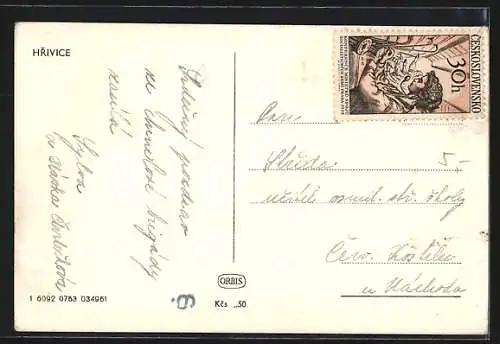 HŘIVICE
Srdečný pozdrav
ze chmelové brigády
zasílá
Sylva
ČESKOSLOVENSKO
30h
Pan
Střída
učitel osmil. stř. školy
Červ. Kostelec
u Náchoda
5-
ORBIS
Kčs ,50
6.
1 6092 0763 034961